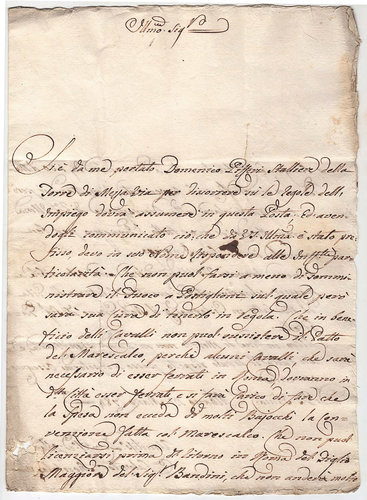 Illmo. Sigre
Si è da me portato Domenico Pifferi Stalliere della
Torre di Mezza Via per discorrere su le cose dell'
Impiego dovrà assumere in questa Posta. Ed aven-
dogli communicato ciò, che da V.S. Illma è stato pre-
fisso devo in suo nome rispondere alle
ticolarità. Che non puol farsi a meno di sommi-
nistrare il fuoco a Postiglioni sul quale però
sarà sua cura di tenerlo in regola. Che in bene-
ficio delli Cavalli non puol sussistere il Patto
del Marescalco, perchè alcuni Cavalli che sarà
necessario di esser ferrati in Roma, dovranno in
esser ferrati e si farà carico di fare che
la Spesa non ecceda di molti Bajocchi la Con-
venzione fatta col Marescalco. Che non puol
licenziarsi prima del ritorno in Roma del Figlio
Maggiore del Sigr. Bandini, che non anderà molto